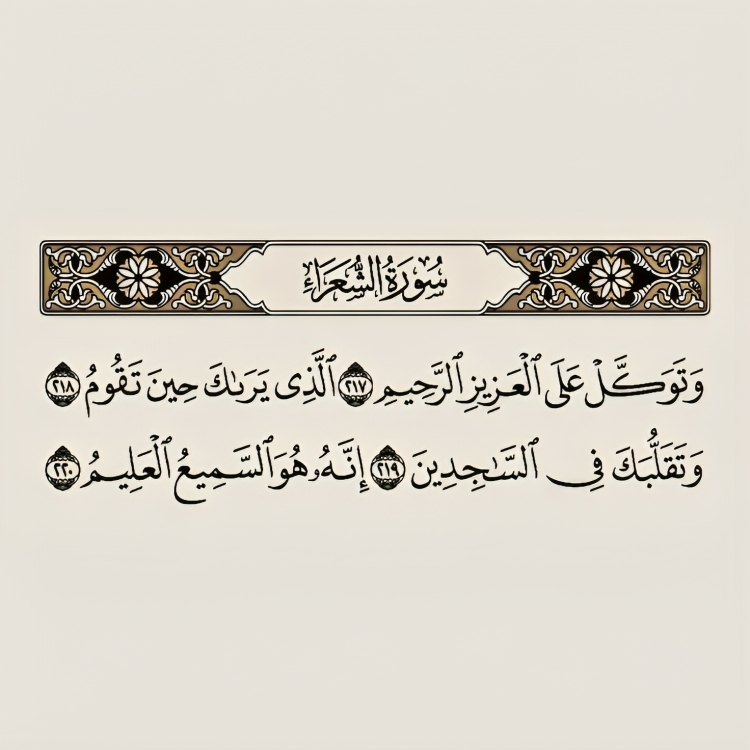 سُورَةُ الشُّعَرَاءِ
وَتَوَكَّلْ عَلَى ٱلْعَزِيزِ ٱلرَّحِيمِ ٢١٧ ٱلَّذِى يَرَىٰكَ حِينَ تَقُومُ ٢١٨
وَتَقَلُّبَكَ فِى ٱلسَّـٰجِدِينَ ٢١٩ إِنَّهُۥ هُوَ ٱلسَّمِيعُ ٱلْعَلِيمُ ٢٢٠